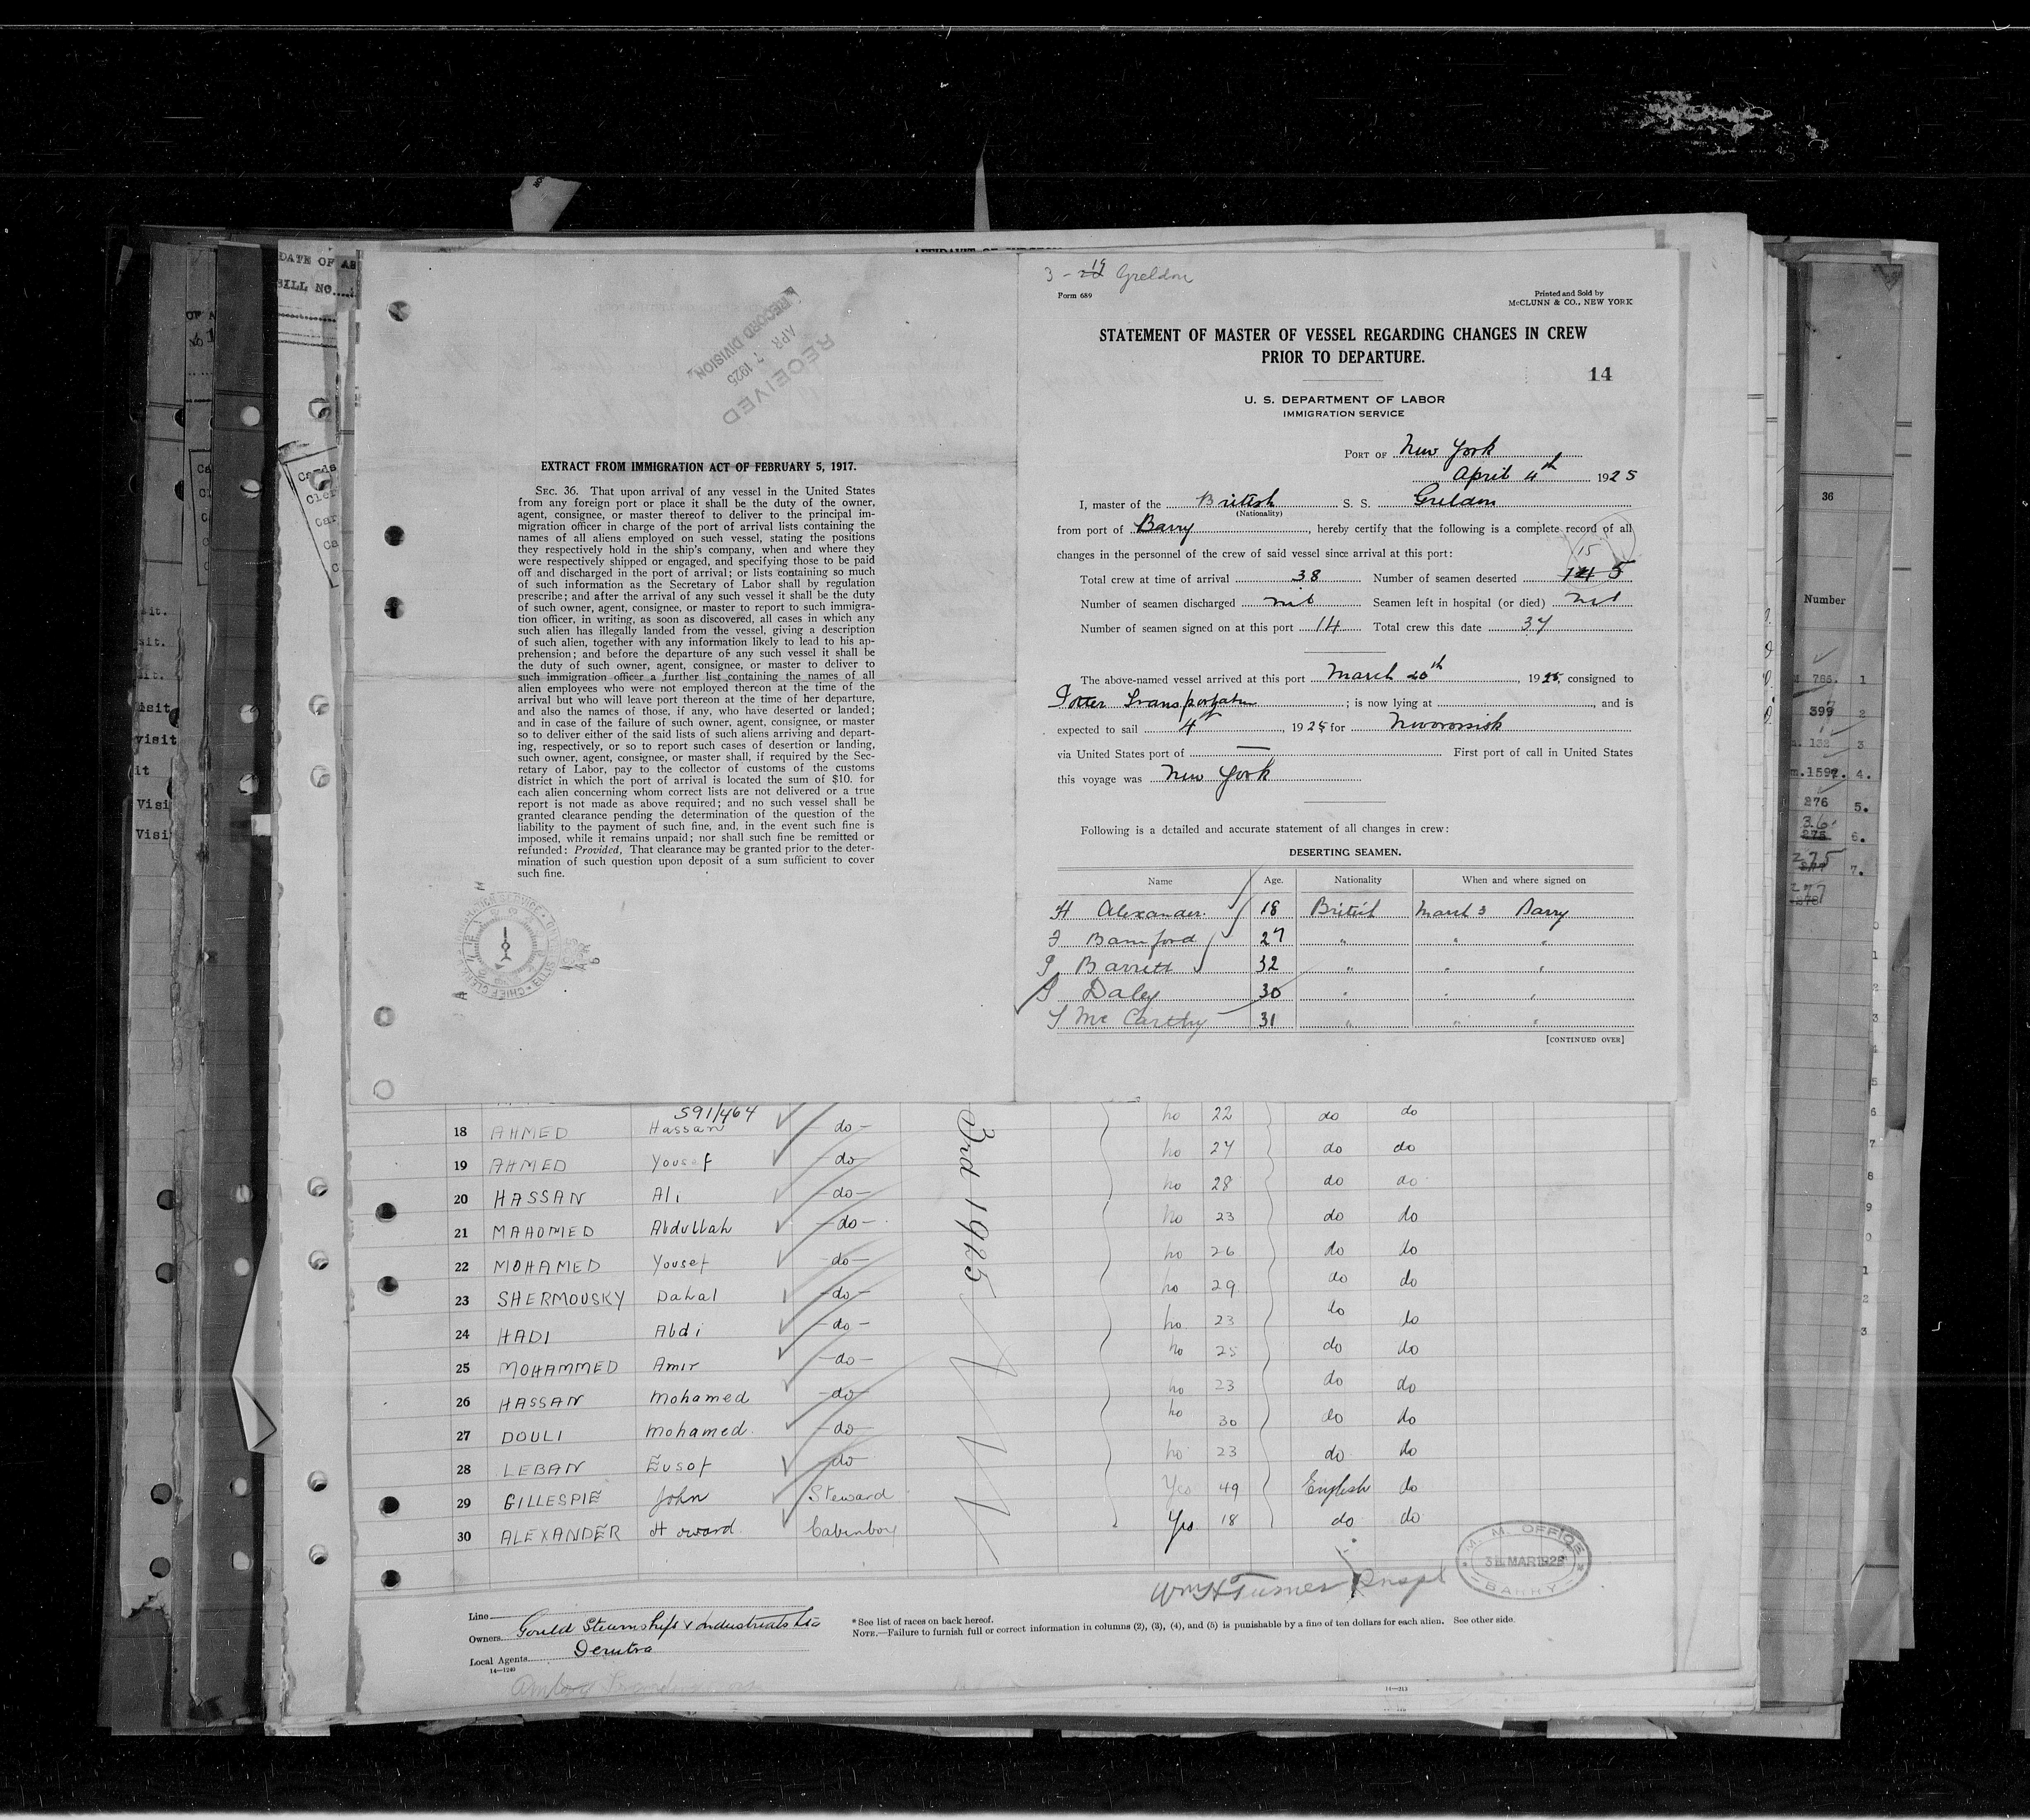 DATE OF
BILL NO.
RECEIVED
APR 7 1925
RECORD DIVISION
EXTRACT FROM IMMIGRATION ACT OF FEBRUARY 5, 1917.
SEC. 36. That upon arrival of any vessel in the United States
from any foreign port or place it shall be the duty of the owner,
agent, consignee, or master thereof to deliver to the principal im-
migration officer in charge of the port of arrival lists containing the
names of all aliens employed on such vessel, stating the positions
they respectively hold in the ship's company, when and where they
were respectively shipped or engaged, and specifying those to be paid
off and discharged in the port of arrival; or lists containing so much
of such information as the Secretary of Labor shall by regulation
prescribe; and after the arrival of any such vessel it shall be the duty
of such owner, agent, consignee, or master to report to such immigra-
tion officer, in writing, as soon as discovered, all cases in which any
such alien has illegally landed from the vessel, giving a description
of such alien, together with any information likely to lead to his ap-
prehension; and before the departure of any such vessel it shall be
the duty of such owner, agent, consignee, or master to deliver to
such immigration officer a further list containing the names of all
alien employees who were not employed thereon at the time of the
arrival but who will leave port thereon at the time of her departure,
and also the names of those, if any, who have deserted or landed;
and in case of the failure of such owner, agent, consignee, or master
so to deliver either of the said lists of such aliens arriving and depart-
ing, respectively, or so to report such cases of desertion or landing,
such owner, agent, consignee, or master shall, if required by the Sec-
retary of Labor, pay to the collector of customs of the customs
district in which the port of arrival is located the sum of $10. for
each alien concerning whom correct lists are not delivered or a true
report is not made as above required; and no such vessel shall be
granted clearance pending the determination of the question of the
liability to the payment of such fine, and, in the event such fine is
imposed, while it remains unpaid; nor shall such fine be remitted or
refunded: Provided, That clearance may be granted prior to the deter-
mination of such question upon deposit of a sum sufficient to cover
such fine.
3 - 19 Greldon
Form 689
Printed and Sold by
McCLUNN & CO., NEW YORK
STATEMENT OF MASTER OF VESSEL REGARDING CHANGES IN CREW
PRIOR TO DEPARTURE.
14
U. S. DEPARTMENT OF LABOR
IMMIGRATION SERVICE
PORT OF New York
April 4th 1925
I, master of the British S. S. Greldon
(Nationality)
from port of Barry, hereby certify that the following is a complete record of all
changes in the personnel of the crew of said vessel since arrival at this port:
15
Total crew at time of arrival 38 Number of seamen deserted
Number of seamen discharged nil Seamen left in hospital (or died) nil
Number of seamen signed on at this port 14 Total crew this date 37
The above-named vessel arrived at this port March 20th, 1925, consigned to
Potter Transportation; is now lying at, and is
expected to sail 4th, 1925 for Novorossisk
via United States port of — First port of call in United States
this voyage was New York
Following is a detailed and accurate statement of all changes in crew:
DESERTING SEAMEN.
Name Age. Nationality When and where signed on
H Alexander. 18 British March 3 Barry
F Bamford 27 " " "
P Barrett 32 " " "
Daley 30 " " "
Mc Carthy 31 " " "
[CONTINUED OVER]
36
Number
786. 1
399 2
3
1597. 4.
276 5.
36. 6.
275 7.
277
591/464
22 do do
18 AHMED Hassan do no 27 do do
19 AHMED Yousef do no 28 do do
20 HASSAN Ali do no 23 do do
21 MAHOMED Abdullah do no 26 do do
22 MOHAMED Yousef do no 29 do do
23 SHERMOUSKY Dahal do no 23 do do
24 HADI Abdi do no 25 do do
25 MOHAMMED Amir do no 23 do do
26 HASSAN Mohamed do no 30 do do
27 DOULI Mohamed. do no 23 do do
28 LEBAN Eusof do
29 GILLESPIE John Steward Yes 49 English do
30 ALEXANDER Howard. Cabinboy Yes 18 do do
3rd 1925
Wm H Turner Inspt
M. M. OFFICE
31 MAR 1925
BARRY
Line
Owners Gould Steamships & Industrials Ltd
Local Agents Derutra
14—1240
* See list of races on back hereof.
NOTE.—Failure to furnish full or correct information in columns (2), (3), (4), and (5) is punishable by a fine of ten dollars for each alien. See other side.
14—213